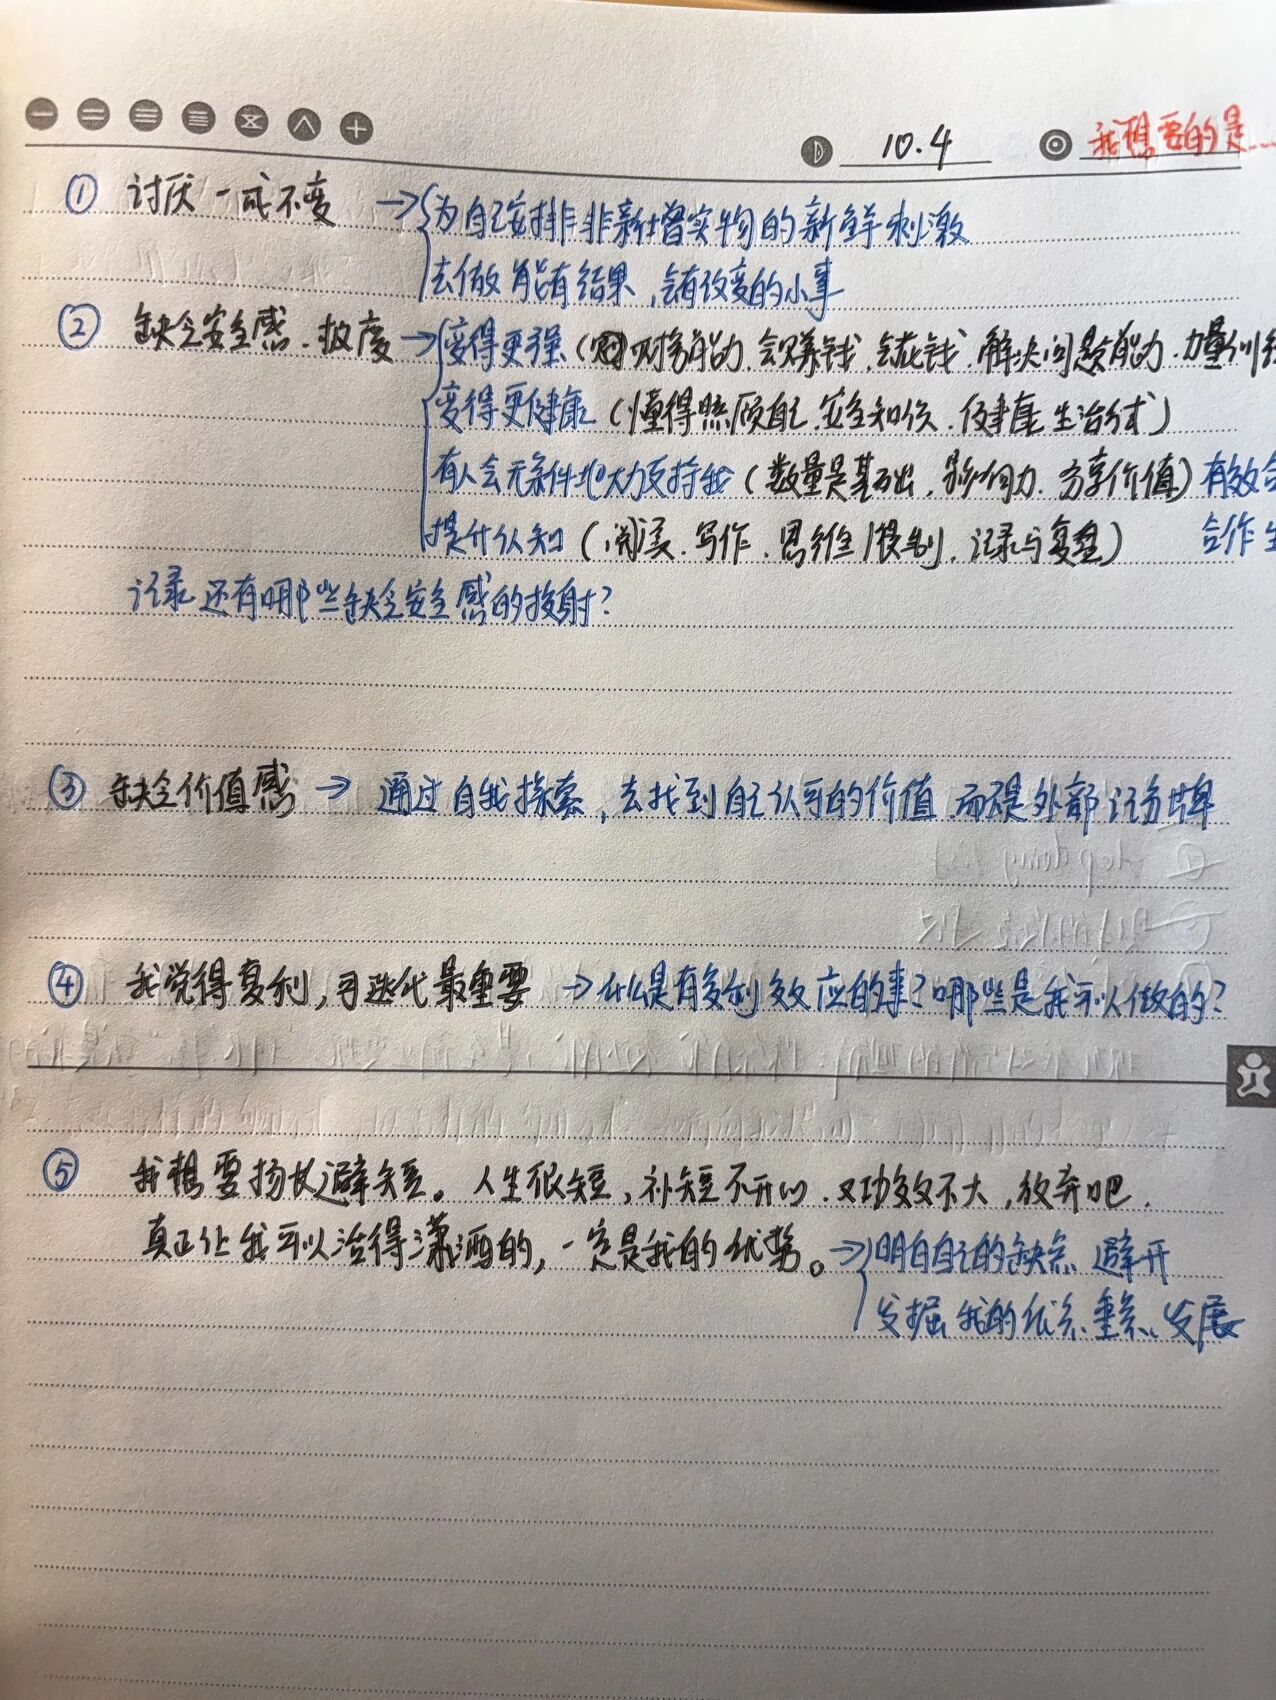 10.4 我想要的是...
① 讨厌一成不变 → 为自己安排非新增实物的新鲜刺激
去做能有结果,会有改变的小事
② 缺乏安全感、 → 变得更强(财务能力、会赚钱、会花钱、解决问题能力、力量训练
变得更健康(懂得照顾自己、安全知识、健康生活方式)
有人会无条件地大力支持我(数量是基础、影响力、分享价值)有效合
提升认知(阅读、写作、思维模型、记录与复盘) 合作
记录还有哪些缺乏安全感的投射?
③ 缺乏价值感 → 通过自我探索,去找到自己认可的价值,而非是外部记分牌
④ 我觉得复利,可迭代最重要 → 什么是有复利效应的事?哪些是我可以做的?
⑤ 我想要扬长避短。人生很短,补短不开心、又功效不大,放弃吧、
真正让我可以活得潇洒的,一定是我的优势。→ 明白自己的缺点、避开
发掘我的优点、重点、发展